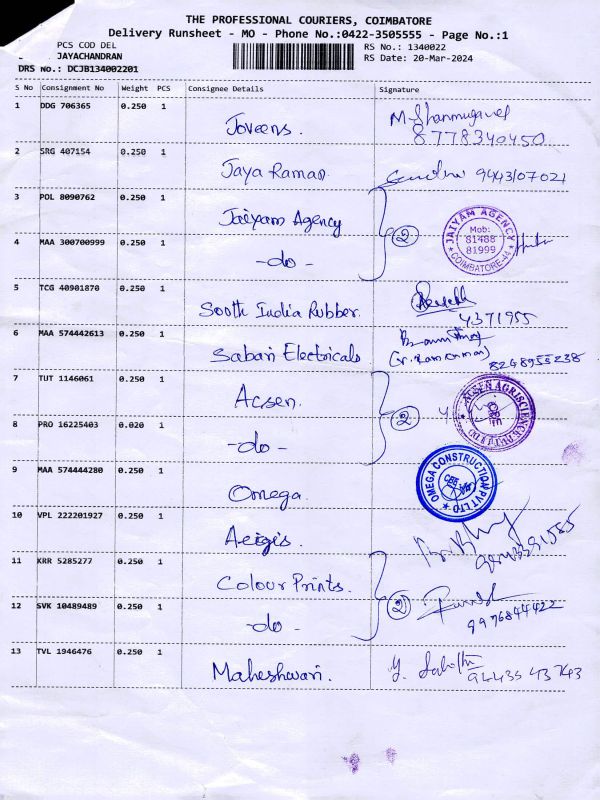 THE PROFESSIONAL COURIERS, COIMBATORE
Delivery Runsheet - MO - Phone No.:0422-3505555 - Page No.:1
PCS COD DEL
JAYACHANDRAN
DRS No.: DCJB134002201
RS No.: 1340022
RS Date: 20-Mar-2024
S No Consignment No Weight PCS Consignee Details Signature
1 DDG 706365 0.250 1 Joveens. M. Shanmugavel
8778340450
2 SRG 407154 0.250 1 Jaya Raman 9443107021
3 POL 8090762 0.250 1 Jaiyam Agency
4 MAA 300700999 0.250 1 -do- 2 JAIYAM AGENCY
Mob:
81488
81999
COIMBATORE-44
5 TCG 40901870 0.250 1 South India Rubber.
4371955
6 MAA 574442613 0.250 1 Sabari Electricals
8248955238
7 TUT 1146061 0.250 1 Acsen.
8 PRO 16225403 0.020 1 -do- 2 ACSEN AGRISCIENCE PVT LTD
9 MAA 574444280 0.250 1 Omega. OMEGA CONSTRUCTION PVT LTD
10 VPL 222201927 0.250 1 Aeigis.
11 KRR 5285277 0.250 1 Colour Prints.
12 SVK 10489489 0.250 1 -do- 2
9976844422
13 TVL 1946476 0.250 1 Maheshwari.
94435 43743